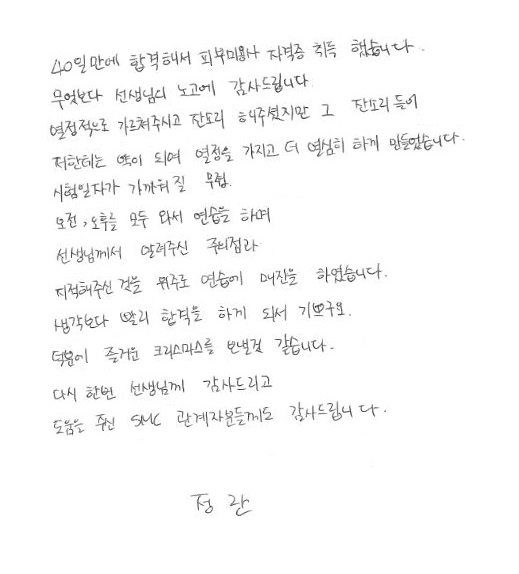 40일만에 합격해서 피부미용사 자격증 취득 했습니다.
무엇보다 선생님의 노고에 감사드립니다
열정적으로 가르쳐주시고 잔소리 해주셨지만 그 잔소리들이
저한테는 약이 되여 열정을 가지고 더 열심히 하게 만들었습니다.
시험일자가 가까워질 무렵.
오전, 오후를 모두 와서 연습을 하며
선생님께서 알려주신 주의점과
지적해주신 것을 위주로 연습에 매진을 하였습니다.
생각보다 빨리 합격을 하게 되서 기쁘구요.
덕분에 즐거운 크리스마스를 보낼것 같습니다.
다시 한번 선생님께 감사드리고
도움을 주신 SMC 관계자분들께도 감사드립니다.
정란